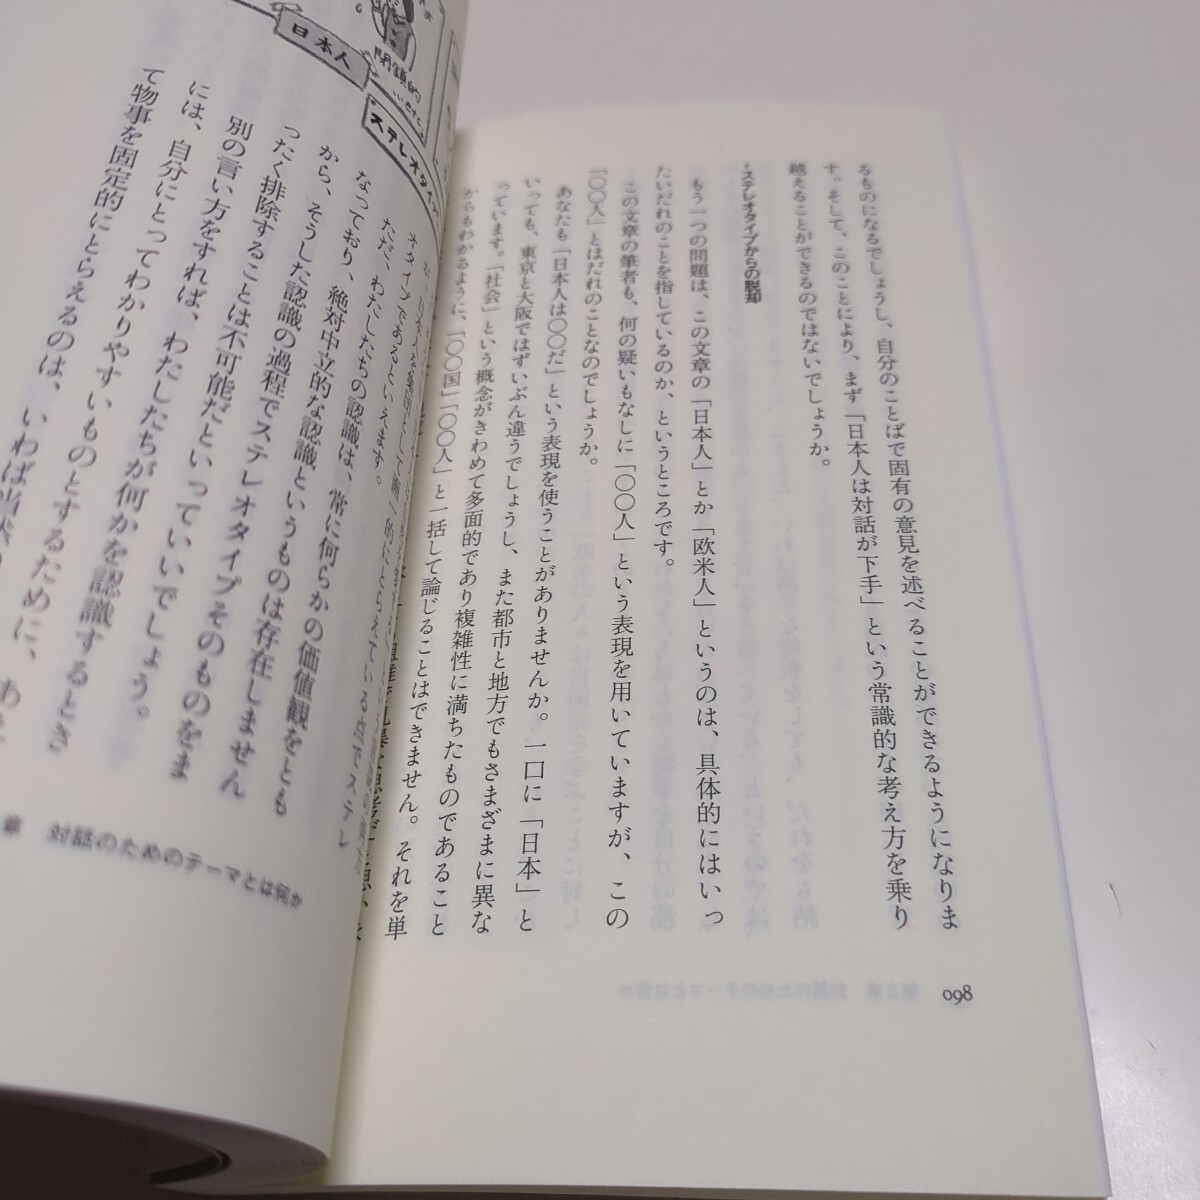 るものになるでしょうし、自分のことばで固有の意見を述べることができるようになりま
す。そして、このことにより、まず「日本人は対話が下手」という常識的な考え方を乗り
越えることができるのではないでしょうか。
・ステレオタイプからの脱却
もう一つの問題は、この文章の「日本人」とか「欧米人」というのは、具体的にはいっ
たいだれのことを指しているのか、というところです。
この文章の筆者も、何の疑いもなしに「〇〇人」という表現を用いていますが、この
「〇〇人」とはだれのことなのでしょうか。
あなたも「日本人は〇〇だ」という表現を使うことがありませんか。一口に「日本」と
いっても、東京と大阪ではずいぶん違うでしょうし、また都市と地方でもさまざまに異な
っています。「社会」という概念がきわめて多面的であり複雑性に満ちたものであること
からもわかるように、「〇〇国」「〇〇人」と一括して論じることはできません。それを単
098
閉鎖的
…etc.
日本人
ステレオタイプ
オタイプであるといえます。
ただ、わたしたちの認識は、常に何らかの価値観をとも
なっており、絶対中立的な認識というものは存在しません
から、そうした認識の過程でステレオタイプそのものをま
ったく排除することは不可能だといっていいでしょう。
別の言い方をすれば、わたしたちが何かを認識するとき
には、自分にとってわかりやすいものとするために、
て物事を固定的にとらえるのは、いわば当然
章 対話のためのテーマとは何か